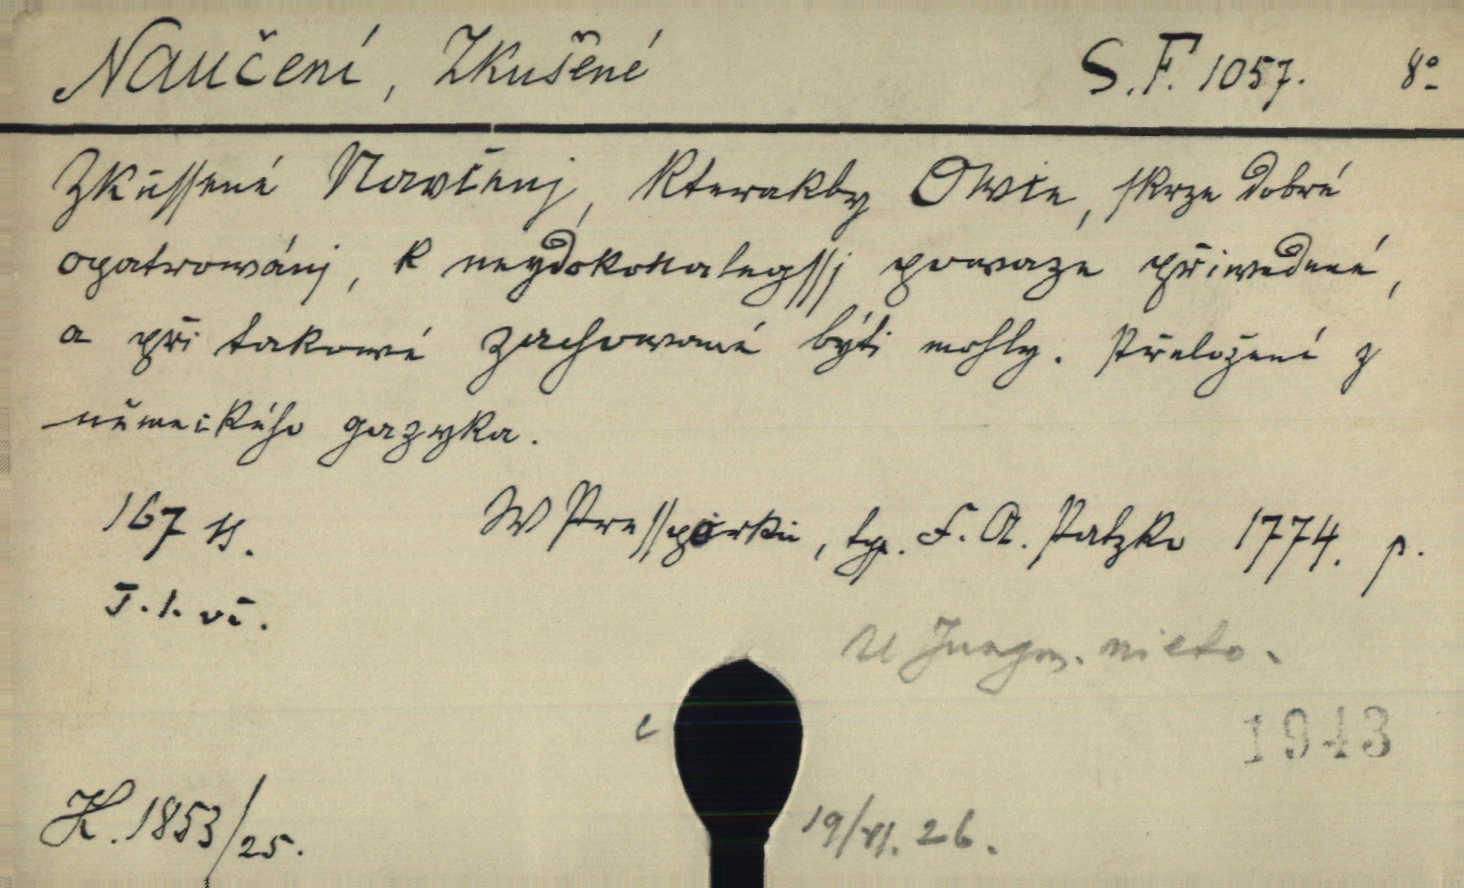 Naučení, Zkušené S.F. 1057. 8°
Zkussené Navčenj, kterakby Owce, skrze dobré
opatrowánj, k neydokonalegssj powaze přiwedené,
a při takowé zachowané býti mohly. Přeložení z
německého gazyka.
167 s. W Presspůrku, typ. F. A. Patzko 1774. p.
I. l. vč.
U Jungm. nieto.
c
1943
K. 1853/25.
19/VI. 26.